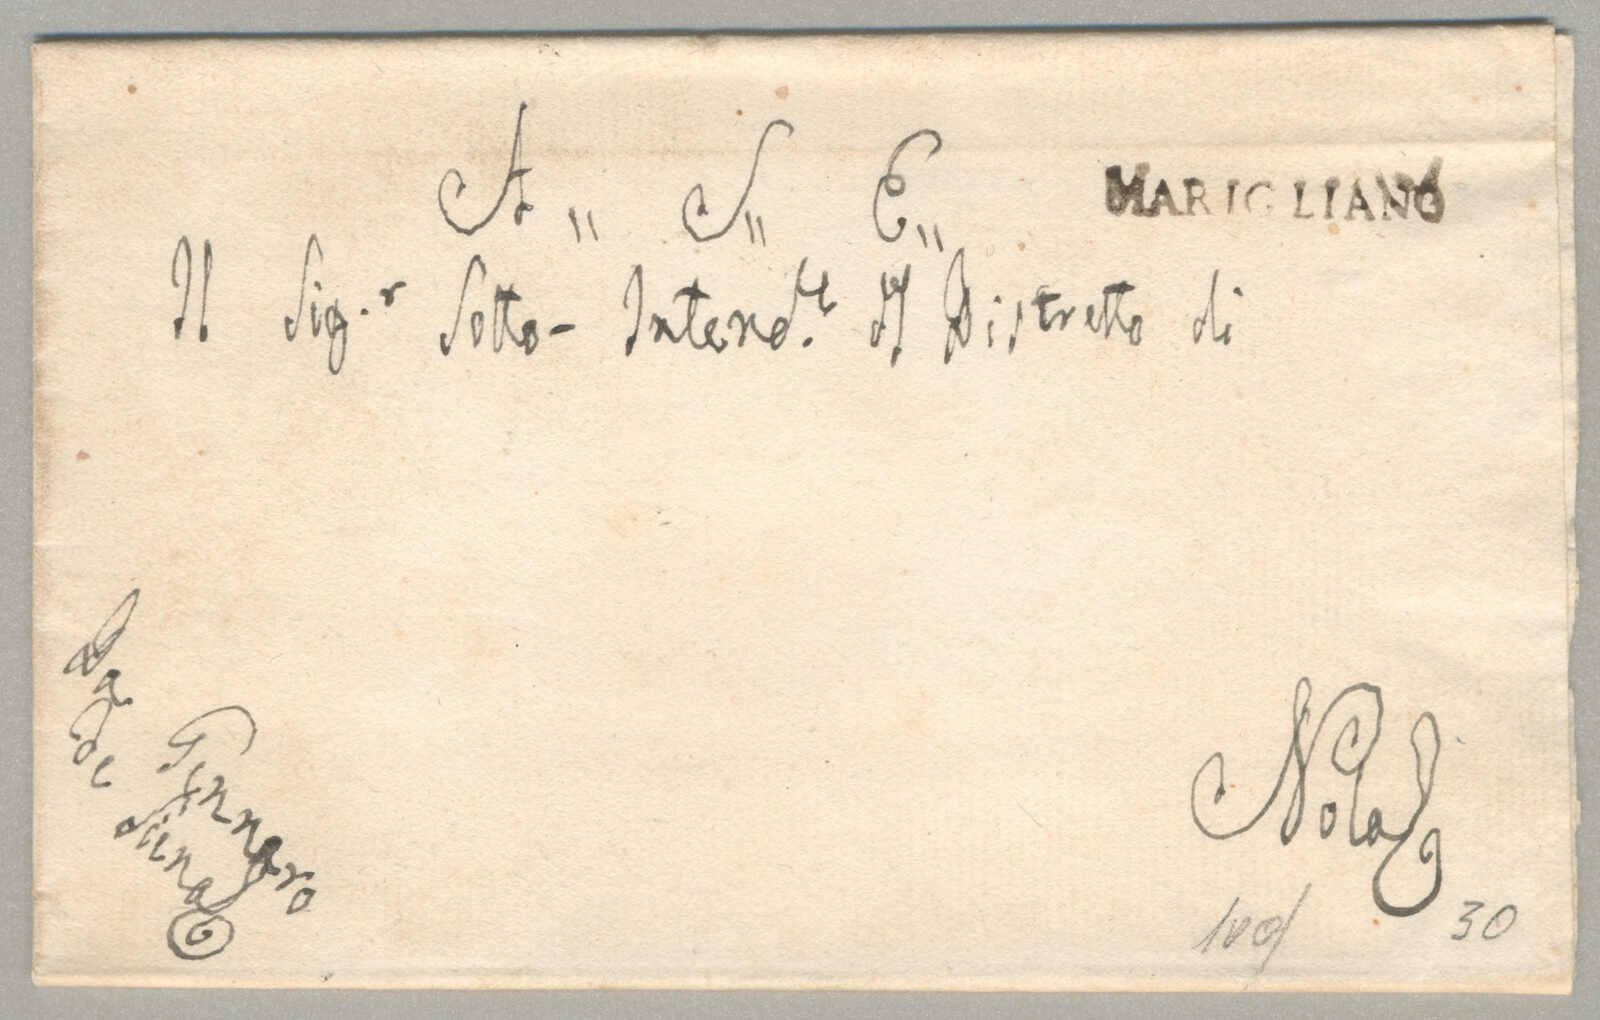 A,, S,, E,,
MARIGLIANO
Il Sig.r Sotto-Intend.te del Distretto di
Nola
Da Gennaro
de Siena
30